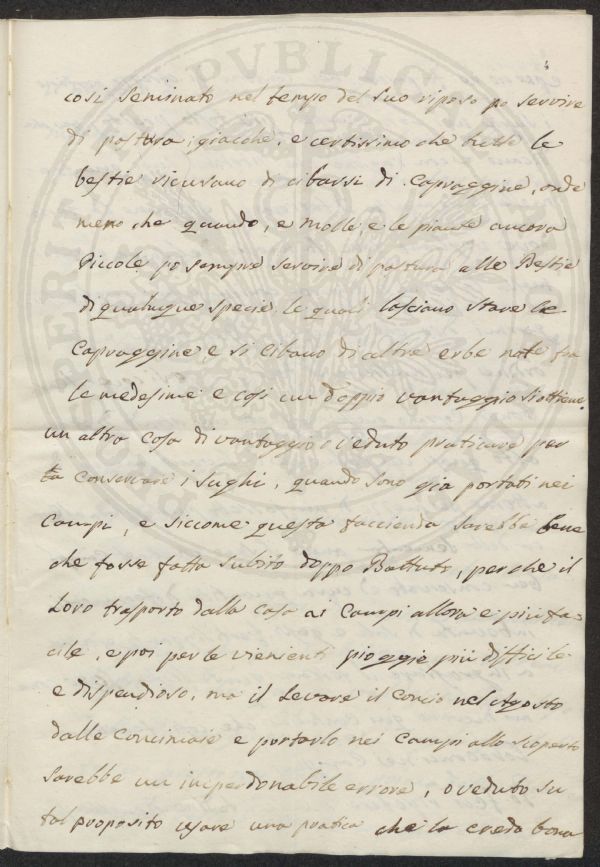 così seminato nel tempo del suo riposo po servire
di pastura, giacche, e certissimo che tutte le
bestie ricusano di cibarsi di Capraggine, onde
meno che quando, e molle, e le piante ancora
Piccole po sempre servire di pastura alle Bestie
di qualunque specie le quali lasciano stare le
Capraggine e si cibano di altre erbe nate fra
le medesime e così un doppio vantaggio si ottiene.
un altra cosa di vantaggio o veduto praticare per
conservare i sughi, quando sono gia portati nei
Campi, e siccome questa faccienda sarebbe bene
che fosse fatta subito doppo Battuto, perche il
Loro trasporto dalla casa ai Campi allora e più fa-
cile, e poi per le vienienti pioggie più difficile
e dispendioso, ma il Levare il Concio nel Agosto
dalle Concimaie e portarlo nei Campi allo scoperto
sarebbe un inperdonabile errore, o veduto su
tal proposito usare una pratica che la credo bona